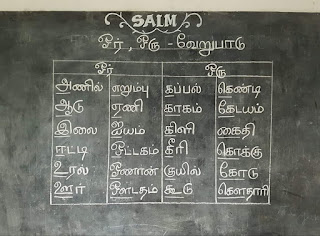 SALM
ஓர் , ஒரு - வேறுபாடு
ஓர் ஒரு
அணில் எறும்பு கப்பல் கெண்டி
ஆடு ஏணி காகம் கேடயம்
இலை ஐயம் கிளி கைதி
ஈட்டி ஒட்டகம் கீரி கொக்கு
உரல் ஓணான் குயில் கோடு
ஊர் ஔடதம் கூடு கௌதாரி